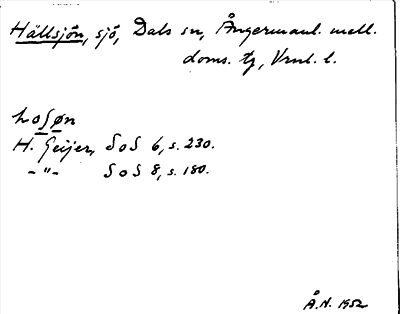 Hällsjön, sjö, Dals sn, Ångermanl. mell.
doms. tg, Vrnl. l.
hoʃøn
H. Geijer, SoS 6, s. 230.
- " - SoS 8, s. 180.
Å.N. 1952